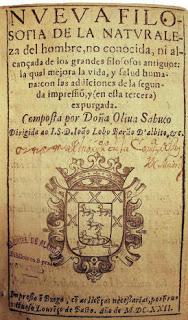 NVEVA FILO-
SOFIA DE LA NATVRALE-
za del hombre, no conocida, ni al-
cançada de los grandes filosofos antiguos:
la qual mejora la vida, y salud huma-
na: con las addiciones de la segun-
da impressiõ, y (en esta tercera)
expurgada.
Composta por Doña Oliua Sabuco
Dirigido ao I.S.D. Ioão Lobo Barão D'albito, &c.
Impresso ẽ Braga, cõ as licẽças necessarias, por Fru-
ctuoso Lourẽço de Basto. año de M.DC.XXII.